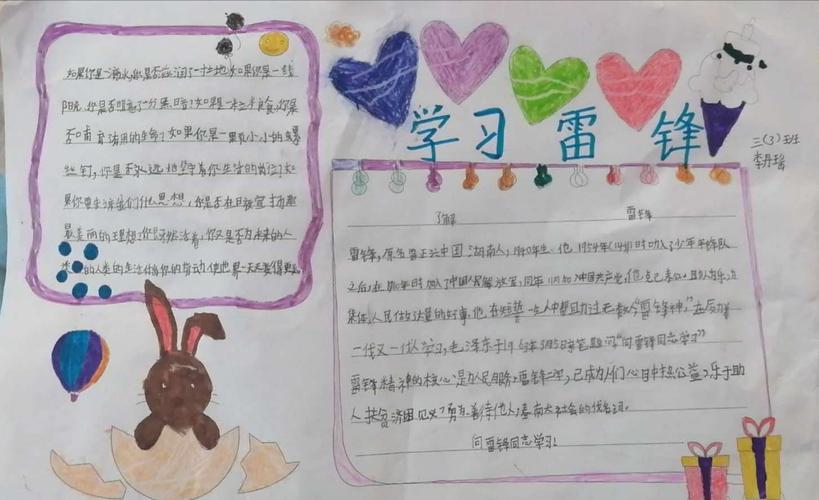 学习雷锋
三(3)班
李丹瑶
如果你是一滴水,你是否滋润了一寸土地如果你是一线
阳光,你是否照亮了一分黑暗?如果是一粒粮食,你是
否哺育有用的生命?如果你是一颗小小的螺
丝钉,你是否永远坚守着你生活的岗位?如
果你要告诉我们什么思想,你是否在日夜宣扬那
最美丽的理想?你既然活着,你又是否为未来的人
类的生活付出你的劳动,使世界一天天变得更
了解 雷锋
雷锋,原名雷正兴中国湖南人,1940年生,他1954年
之后,在1960年时加入了中国人民解放军,同年11月加入中国共产党,
集体,人民做了大量的好事,他在短暂一生中帮助过无数人"雷锋精神",
一代又一代人学习,毛泽东于1963年3月5日亲笔题词"向雷锋同志学习"
雷锋精神的核心是为人民服务,雷锋二字,已成为人们心目中热心公益,乐于助
人,扶贫济困见义勇为,善待他人,奉献社会的代名词。
向雷锋同志学习!